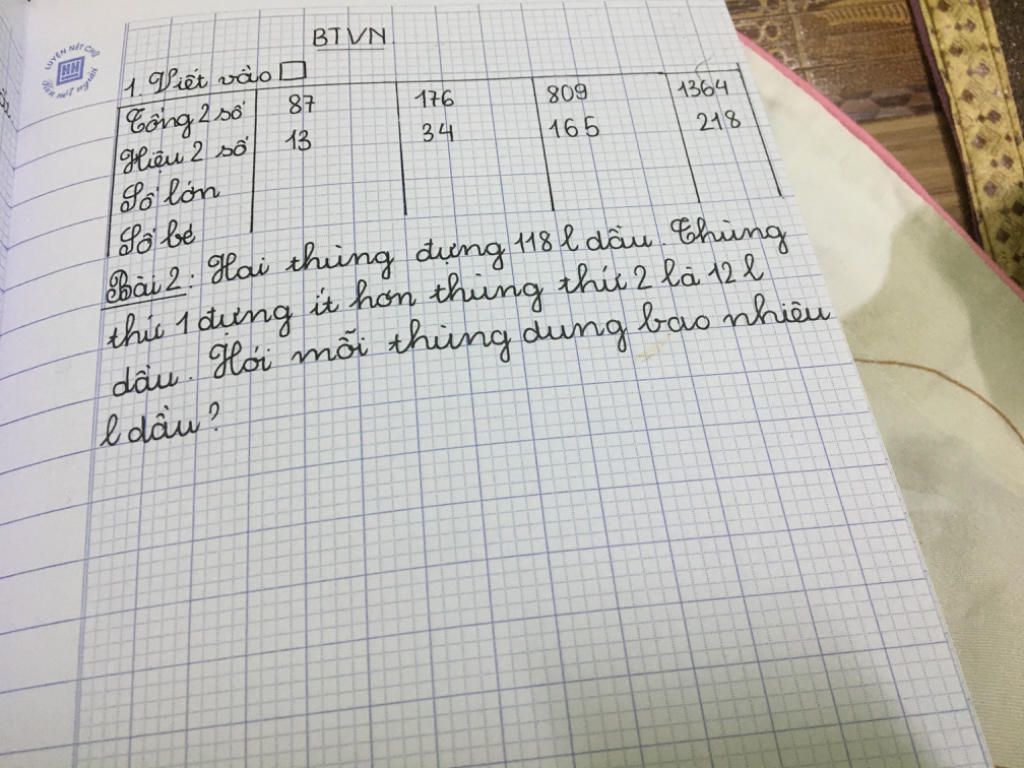 BTVN
LUYỆN NÉT CHỮ
1 Viết vào □
Tổng 2 số 87 176 809 1364
Hiệu 2 số 13 34 165 218
Số lớn
Số bé
Bài 2: Hai thùng đựng 118 l dầu. Thùng
thứ 1 đựng ít hơn thùng thứ 2 là 12 l
dầu. Hỏi mỗi thùng dung bao nhiêu
l dầu?